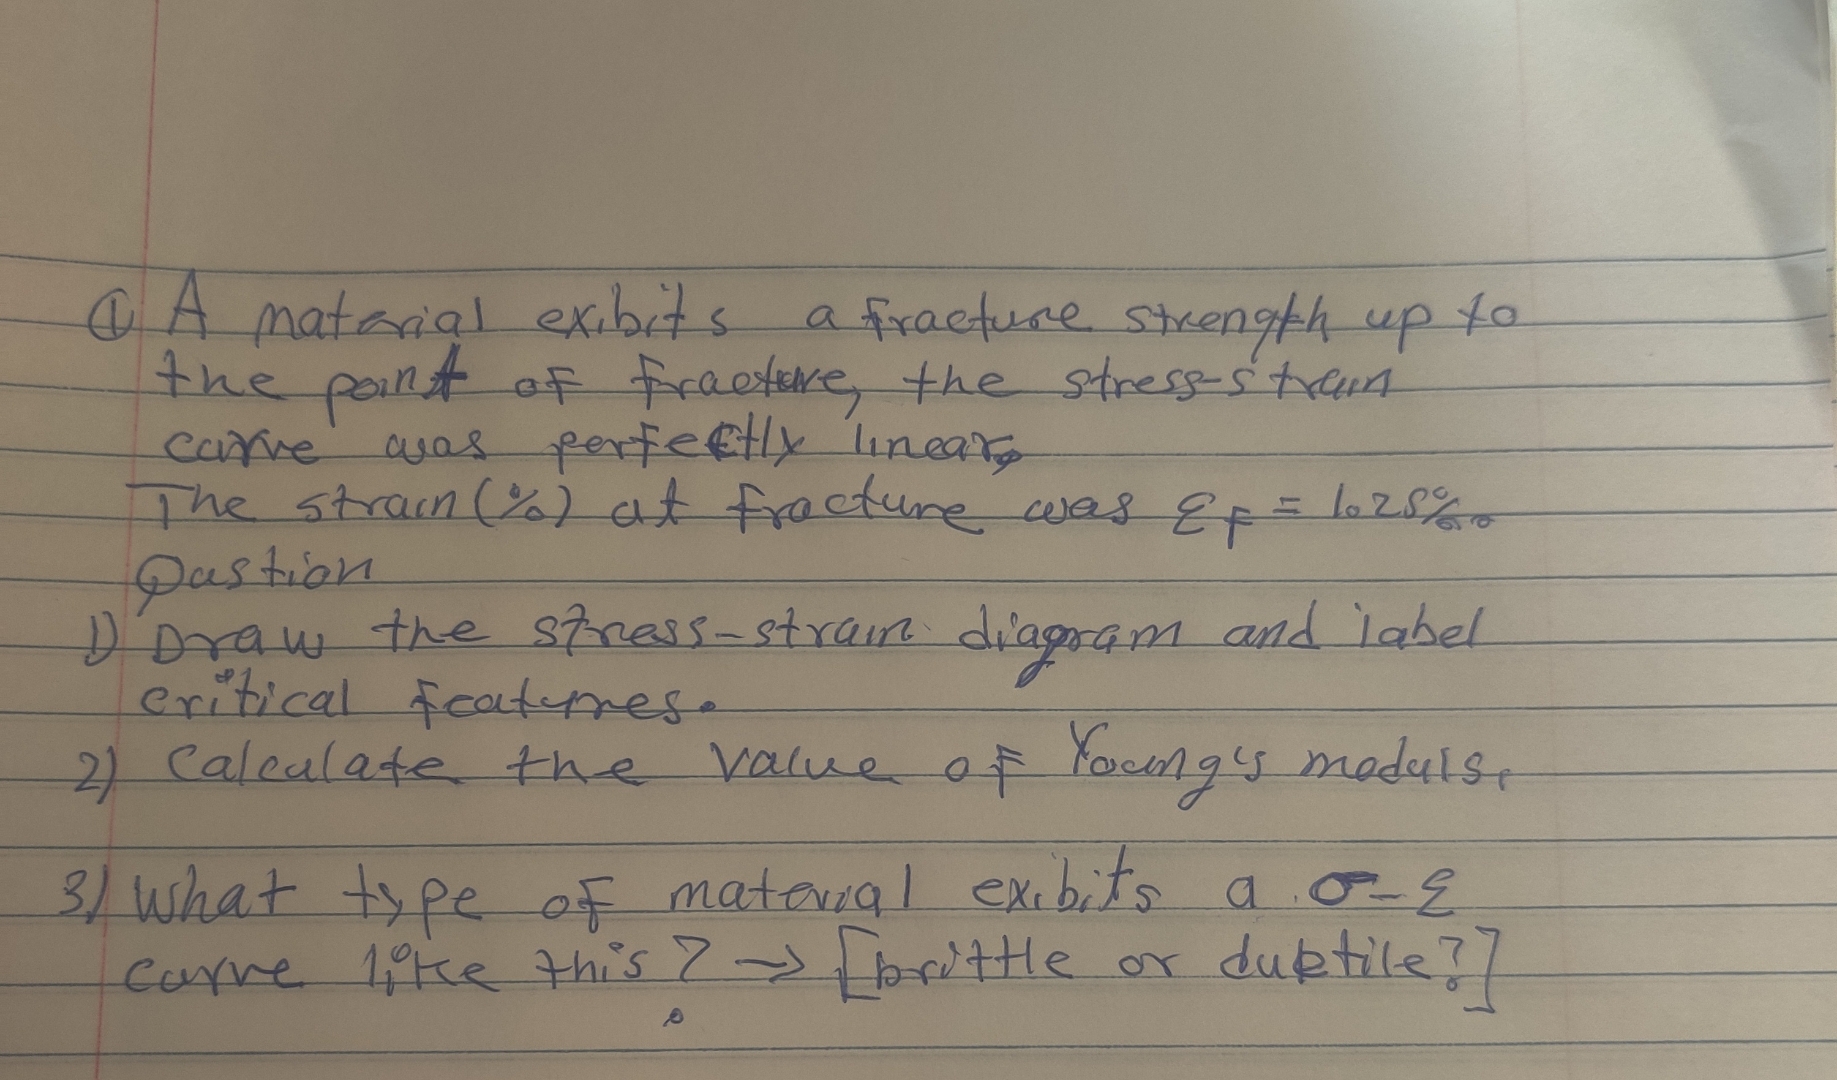 ① A material exibits a fracture strength up to
the point of fracture, the stress-strain
curve was perfectly linear,
The strain (%) at fracture was εF = 1.25%.
Qustion
1) Draw the stress-strain diagram and label
critical features.
2) Calculate the value of Young's moduls.
3) What type of material exibits a σ-ε
curve like this? → [brittle or duktile?]